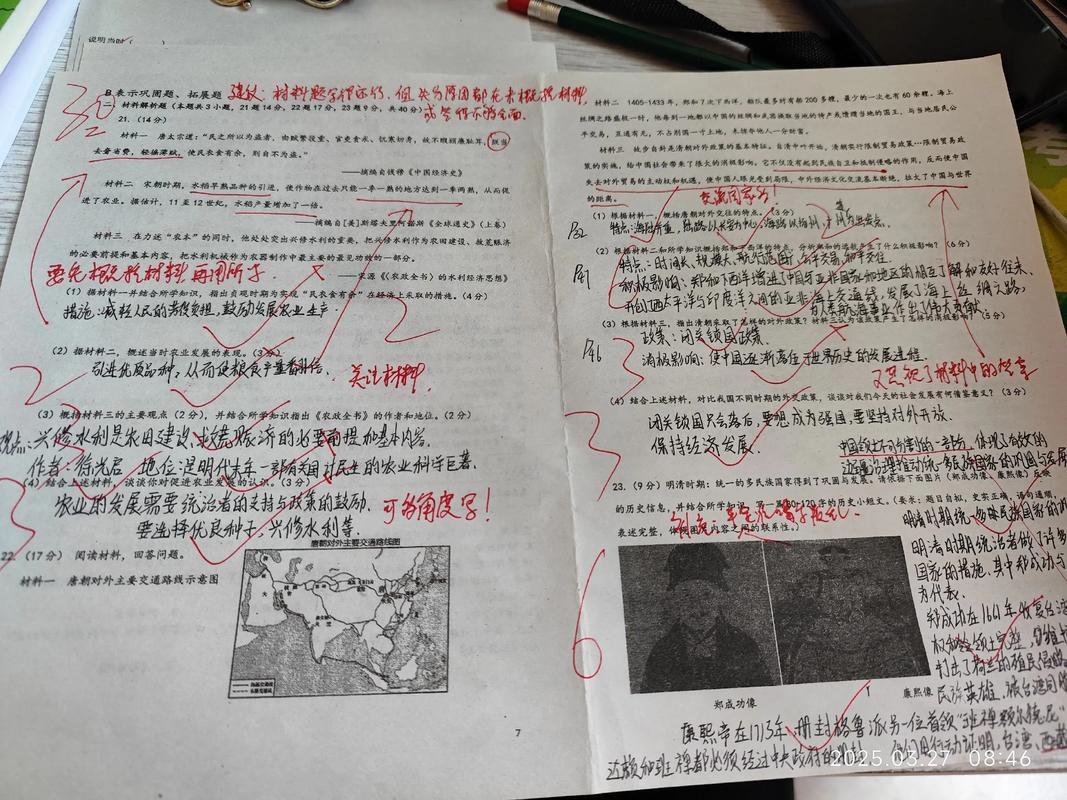 说明当时(
B 表示巩固题、拓展题 建议:材料题写得还行,但失分原因都在未概括材料,或答得不够全面.
二) 材料解析题(本题共3小题,21题14分,22题17分,23题9分,共40分)
21. (14分)
材料一 唐太宗道:“民之所以为盗者,由赋繁役重,官吏贪求,饥寒切身,故不暇顾廉耻耳,朕当
去奢省费,轻徭薄赋,使民衣食有余,则自不为盗。”
——摘编自钱穆《中国经济史》
材料二 宋朝时期,水稻早熟品种的引进,使作物在过去只能一季一熟的地方达到一季两熟,从而促
进了农业。据估计,11 至 12世纪,水稻产量增加了一倍。
——摘编自[美]斯塔夫里阿诺斯《全球通史》(上卷)
材料三 在力述“农本”的同时,他处处突出兴修水利的重要,把兴修水利作为农田建设、救荒赈济
的必要前提和基本内容,把水利机械作为农器制作中最主要的最见功效的一部分。
——宋源《〈农政全书〉的水利经济思想》
要先概括材料,再用所学
(1) 据材料一并结合所学知识,指出贞观时期为实现“民衣食有余”在经济上采取的措施。(4分)
措施:减轻人民的劳役负担,鼓励发展农业生产.
2
(2) 据材料二,概述当时农业发展的表现。(3分)
引进优质品种,从而使粮食产量翻倍.
关注材料.
2
(3) 概括材料三的主要观点(2分),并结合所学知识指出《农政全书》的作者和地位。(2分)
观点:兴修水利是农田建设、救荒赈济的必要前提和基本内容.
作者:徐光启 地位:是明代末年一部有关国计民生的农业科学巨著.
(4) 结合上述材料,谈谈你对促进农业发展的认识。(3分)
农业的发展需要统治者的支持与政策的鼓励.
要选择优良种子,兴修水利等.
可多角度写!
22. (17分) 阅读材料,回答问题。
材料一 唐朝对外主要交通路线示意图
唐朝对外主要交通路线图
7
材料二 1405-1433年,郑和7次下西洋,船队最多时有船200多艘,最少的一次也有60余艘。海上
丝绸之路盛极一时,他每到一地都以中国的丝绸以及武器换取当地的特产或馈赠当地的国王,与当地居民公
平交易,互通有无,不占别国一寸土地,未掠夺他人一分财富。
材料三 徒步自封是清朝对外政策的基本特征。自清中叶开始,清朝实行限制贸易政策…限制贸易政
策的实施,给中国社会带来了很大的消极影响。它不仅没有起到民族自卫和抵制侵略的作用,反而使中国
失去对外贸易的主动权和机遇,使中国人眼光受到局限,中外经济文化交流基本断绝,拉大了中国与世界
的距离。
交流国家多!
(1) 根据材料一,概括唐朝对外交往的特点。(3分)
P32
特点:海陆并重,陆路以长安为中心,海路以扬州、广州等为出发点.
(2) 根据材料二和所学知识概括郑和下西洋的特点,分析郑和的远航产生了什么积极影响? (6分)
特点:时间长、规模大、航行范围广、公平交易、和平交往.
积极影响:郑和下西洋增进了中国与亚非国家和地区的相互了解和友好往来、
开创了西太平洋与印度洋之间的亚非海上交通线,发展了海上丝绸之路,
为人类航海事业作出了伟大贡献
(3) 根据材料三,指出清朝采取了怎样的对外政策?材料三认为该政策产生了怎样的消极影响? (5分)
P46
政策:闭关锁国政策.
消极影响:使中国逐渐落伍于世界历史的发展进程.
3
又忽视了材料中的内容
(4) 结合上述材料,对比不同时期的对外政策,谈谈对我们今天的社会发展有何借鉴意义? (3分)
闭关锁国只会落后,要想成为强国,要坚持对外开放.
保持经济发展.
3
23. (9分) 明清时期:统一的多民族国家得到了巩固与发展。请依据下面图片(郑成功像、康熙帝像)反映
的历史信息,并结合所学知识
表述完整,体现图片内容之间的联系性。)
6
明清时期统治者做了许多
国家的措施.其中郑成功与
为代表.
郑成功在1661年收复台湾
打击了荷兰的殖民侵略
民族英雄.
郑成功像
康熙像
康熙帝在1713年册封格鲁派另一位首领“班禅额尔德尼”
达赖和班禅都必须经过中央政府的册封.
2025.03.27 08:46